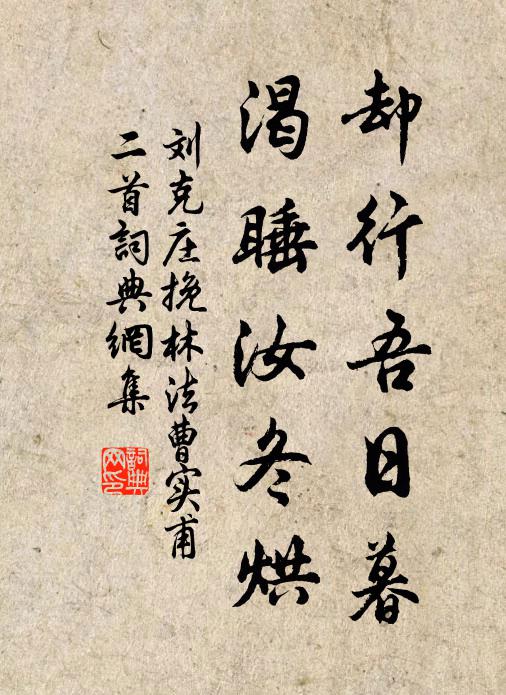 却行吾日暮
渴睡汝冬烘
刘克庄挽林法曹实甫
二首词典網集
詞典網印